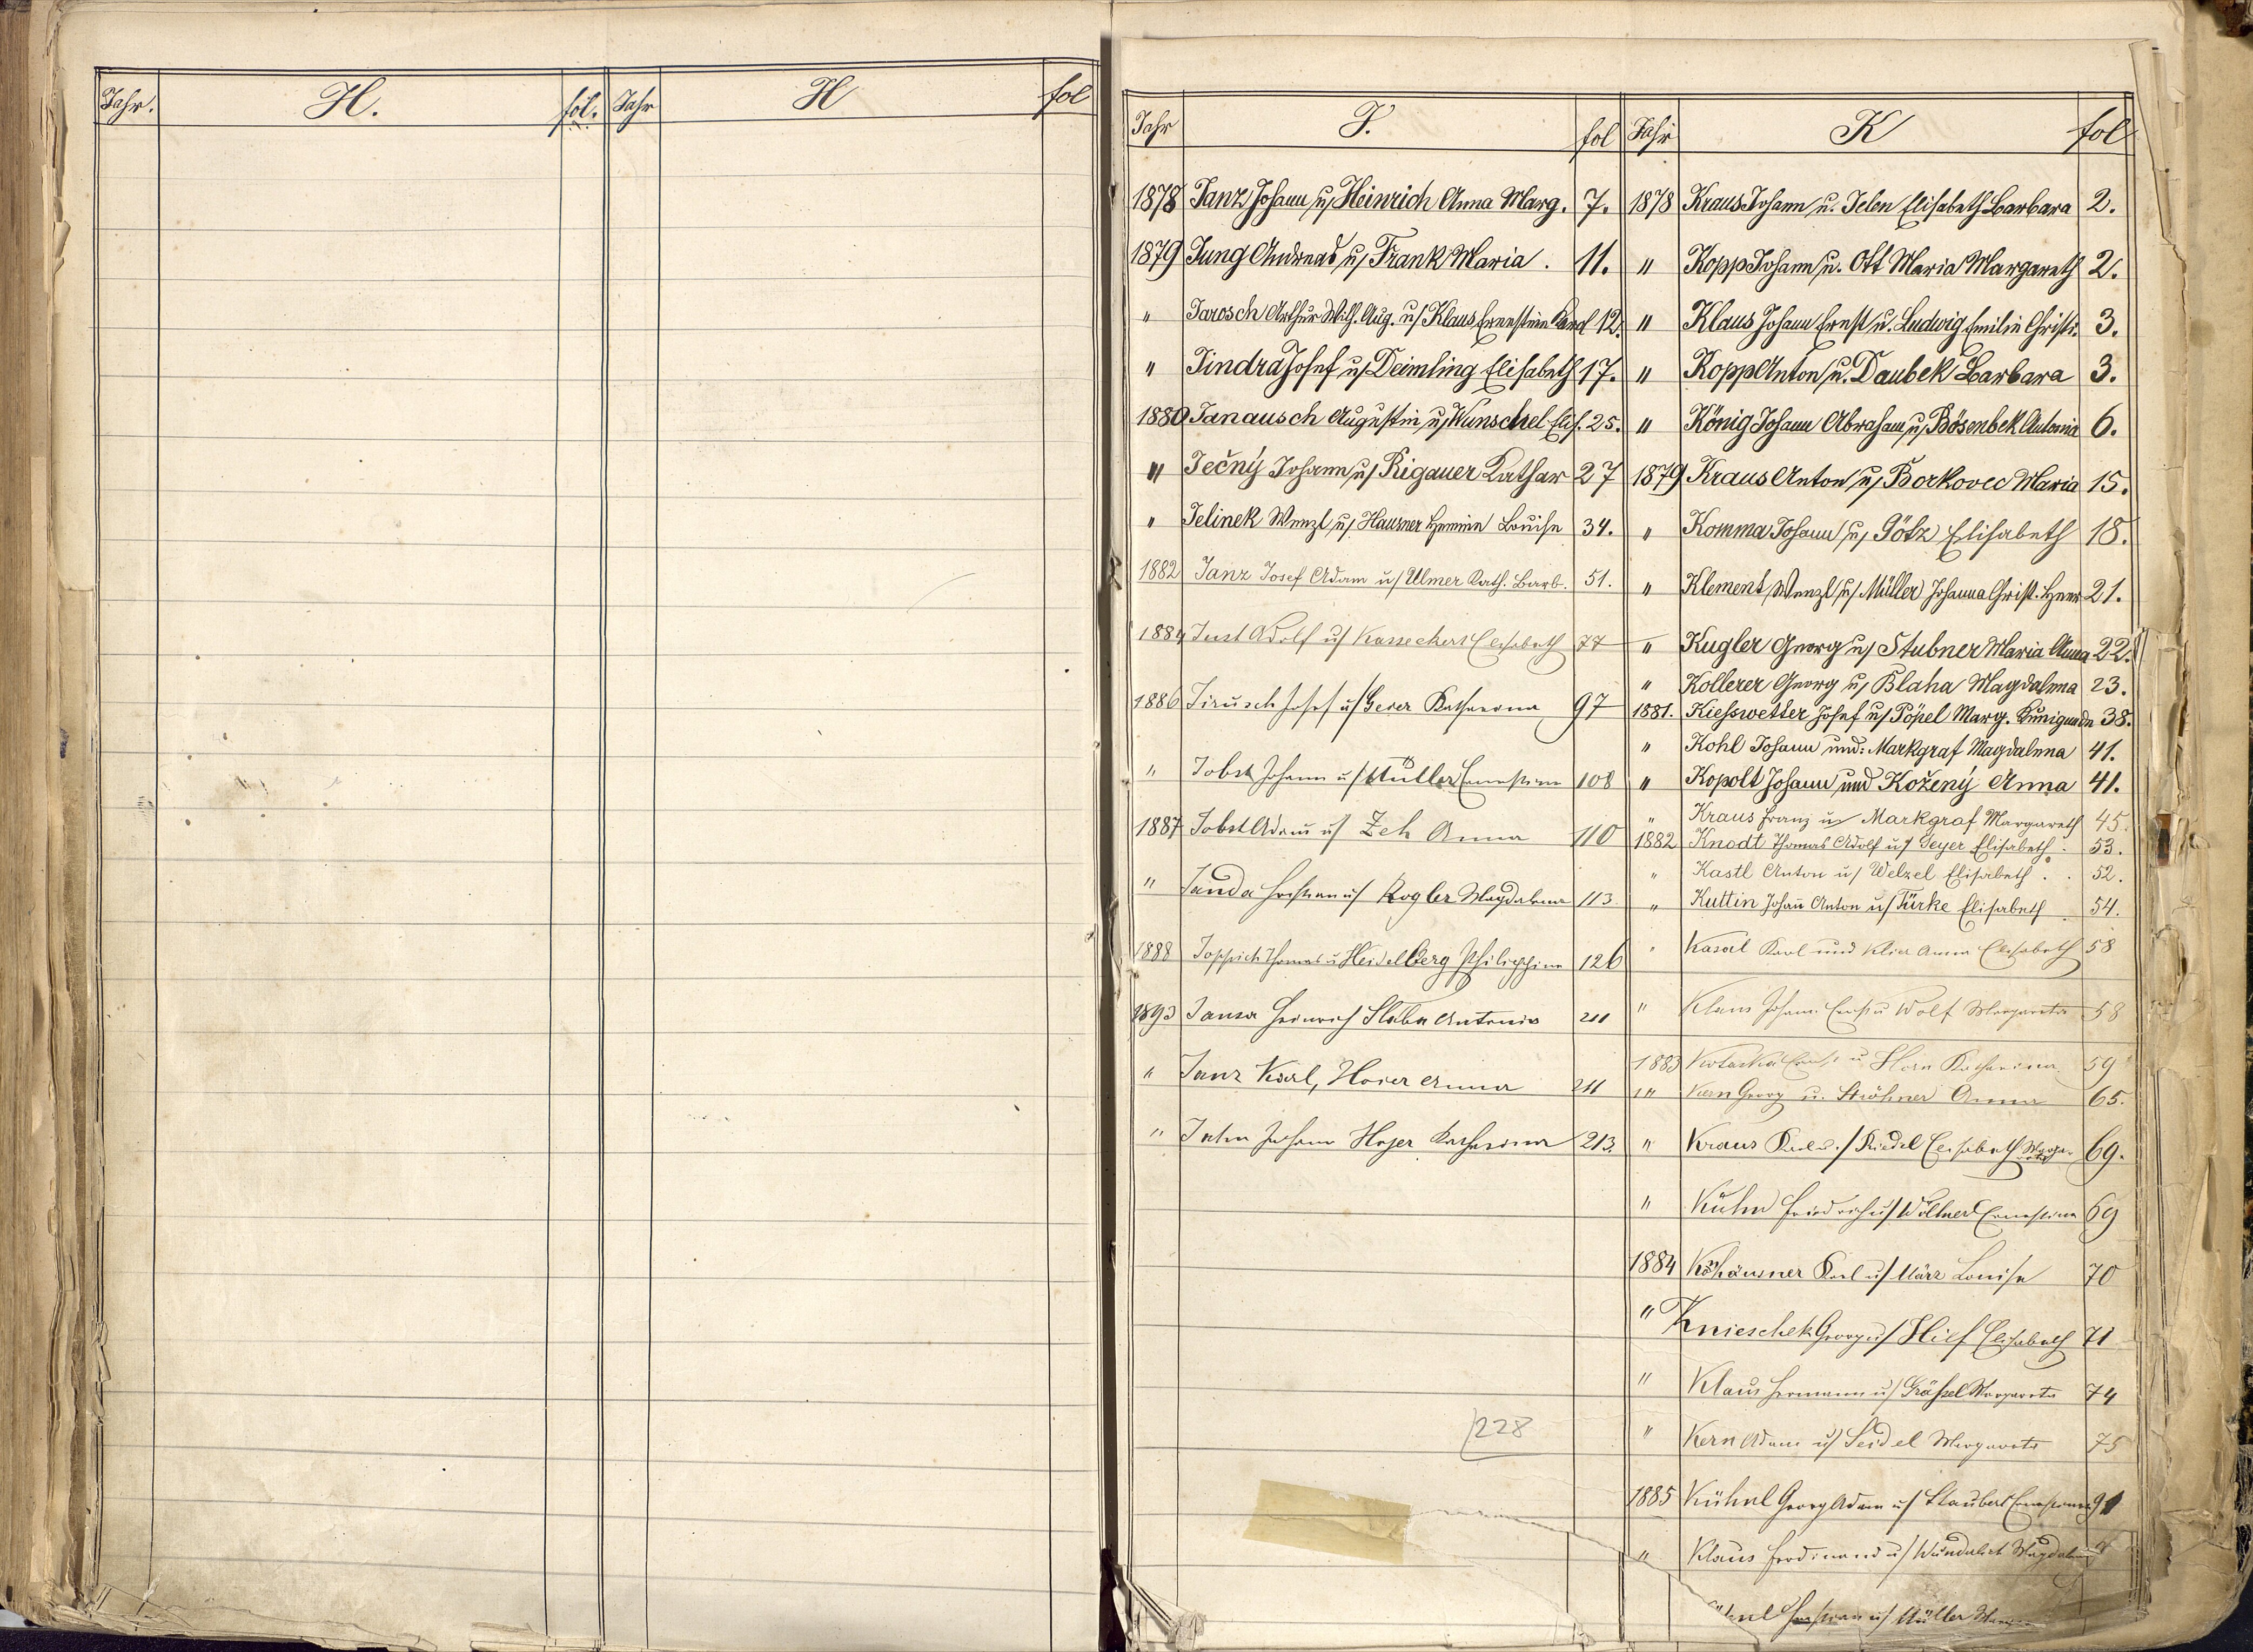 Jahr. H. fol. Jahr H fol
Jahr J. fol
1878 Janz Johann u/ Heinrich Anna Marg. 7.
1879 Jung Andreas u/ Frank Maria. 11.
" Jarosch Arthur Wilh. Aug. u/ Klaus Ernestine 12.
" Jindra Josef u/ Deimling Elisabeth 17.
1880 Janausch Augustin u/ Wunschel Elis. 25.
" Ječný Johann u/ Rigauer Kathar 27
" Jelinek Wenzl u/ Hausner Louise 34.
1882 Janz Josef Adam u/ Ulmer Kath. Barb. 51.
1884 Just Adolf u/ Elisabeth 77
1886 Jirusch Josef u/ Geier Katharina 97
" Jobst Johann u/ Müller Ernestine 108
1887 Jobst Adam u/ Zeh Anna 110
" Janda u/ Kogler Magdalena 113
1888 Joppich Thomas u Heidelberg Philippine 126
1893 Jansa Heinrich Antonia 211
" Janz Karl, Hoier Anna 211
" Johann Hojer Katharina 213.
228
Jahr K fol
1878 Kraus Johann u. Jelen Elisabeth Barbara 2.
" Kopp Johann u. Ott Maria Margareth 2.
" Klaus Johann Ernst u. Ludwig Emilie Christi. 3.
" Kopp Anton u. Daubek Barbara 3.
" König Johann Abraham u/ Bösenbek Antonia 6.
1879 Kraus Anton u/ Borkovec Maria 15.
" Komma Johann u/ Götz Elisabeth 18.
" Klement Wenzl u/ Müller Johanna Christ. 21.
" Kugler Georg u/ Stubner Maria Anna 22.
" Kollerer Georg u/ Blaha Magdalena 23.
1881. Kiesswetter Josef u/ Pöpel Marg. Kunigunde 38.
" Kohl Johann und: Markgraf Magdalena 41.
" Kopolt Johann und Kožený Anna 41.
" Kraus Franz u/ Markgraf Margareth 45.
1882 Knodt Thomas Adolf u/ Geyer Elisabeth. 53.
" Kastl Anton u/ Welzel Elisabeth.. 52.
" Kuttin Johañ Anton u/ Türke Elisabeth. 54.
" Karl und Klier Anna Elisabeth 58
" Klaus Johann Ernst u Wolf Margareta 58
1883 u Horn Katharina 59
" Kern Georg u. Ströhner Anna 65.
" Kraus Karl u./ Riedel Elisabeth 69.
" Kühn Friedrich u/ Ernestine 69
1884 Karl u/ März Louise 70
" Knieschek Georg u/ Hilf Elisabeth 71
" Klaus Hermann u/ Margareta 74
" Kern Adam u/ Seidel Margareta 75
1885 Kühnl Georg Adam u/ Staubert Ernestine 91
" Klaus Ferdinand u/ Wunderlich
u/ Müller